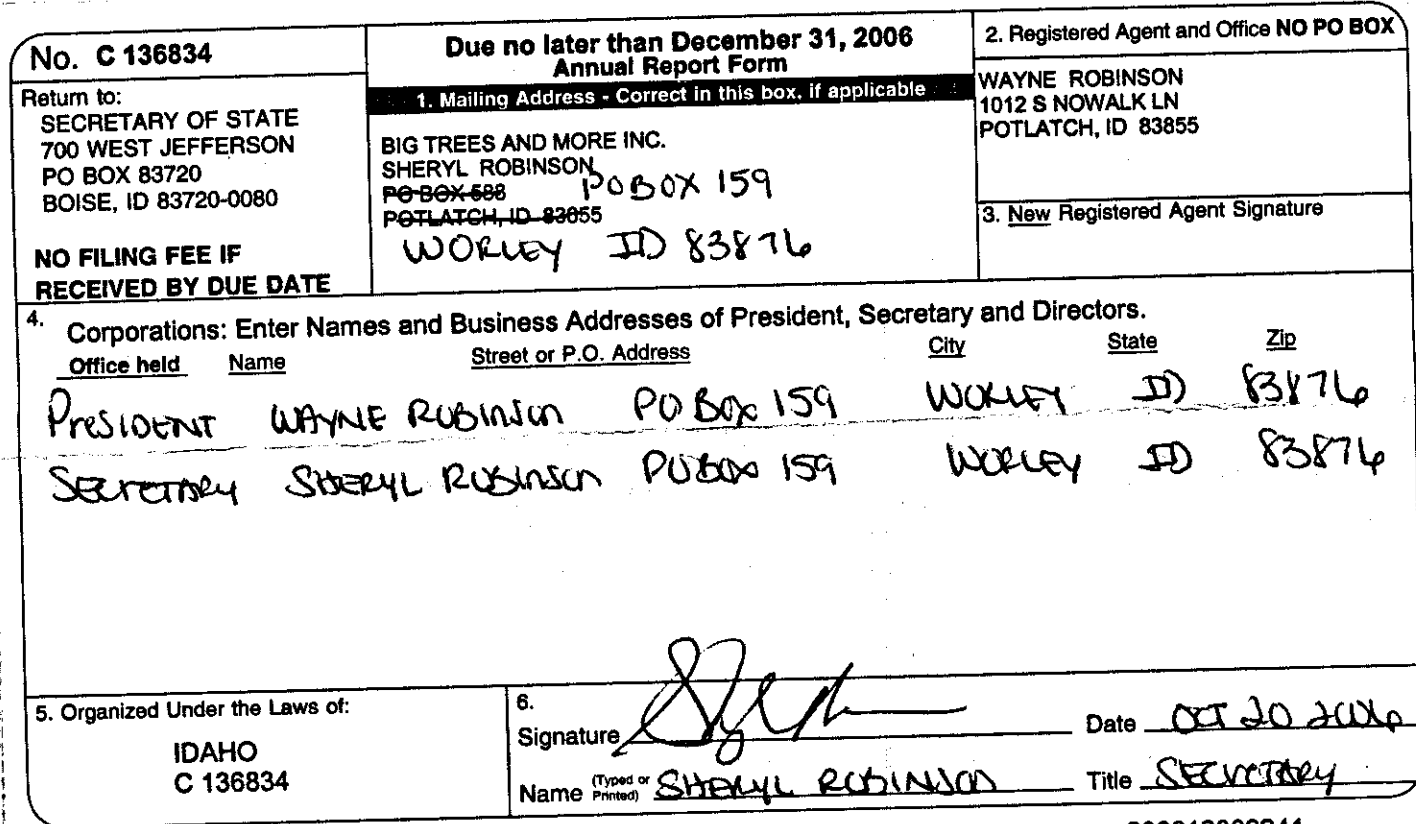 No. C 136834
Return to:
SECRETARY OF STATE
700 WEST JEFFERSON
PO BOX 83720
BOISE, ID 83720-0080
NO FILING FEE IF
RECEIVED BY DUE DATE
Due no later than December 31, 2006
Annual Report Form
1. Mailing Address - Correct in this box, if applicable
BIG TREES AND MORE INC.
SHERYL ROBINSON
PO BOX 588 PO BOX 159
POTLATCH, ID 83855
WORLEY ID 83876
2. Registered Agent and Office NO PO BOX
WAYNE ROBINSON
1012 S NOWALK LN
POTLATCH, ID 83855
3. New Registered Agent Signature
4. Corporations: Enter Names and Business Addresses of President, Secretary and Directors.
Office held Name Street or P.O. Address City State Zip
PRESIDENT WAYNE ROBINSON PO BOX 159 WORLEY ID 83876
SECRETARY SHERYL ROBINSON PO BOX 159 WORLEY ID 83876
5. Organized Under the Laws of:
IDAHO
C 136834
6.
Signature Date OCT 20 2006
Name (Typed or Printed) SHERYL ROBINSON Title SECRETARY